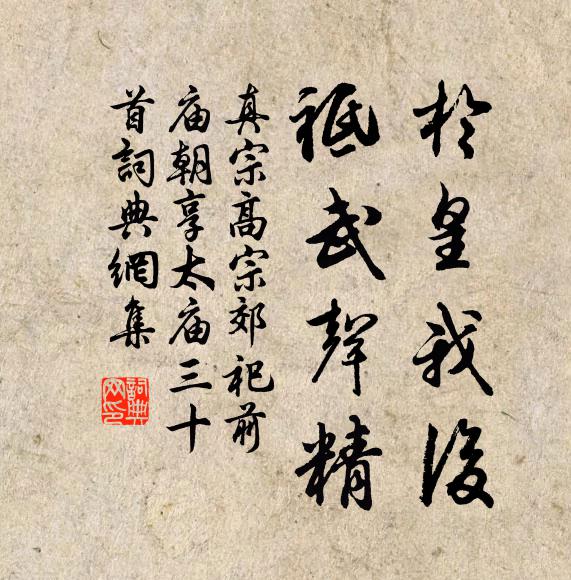 於皇我後
祗武聲精
真宗高宗郊祀前
庙朝享太庙三十
首詞典網集
詞典网印